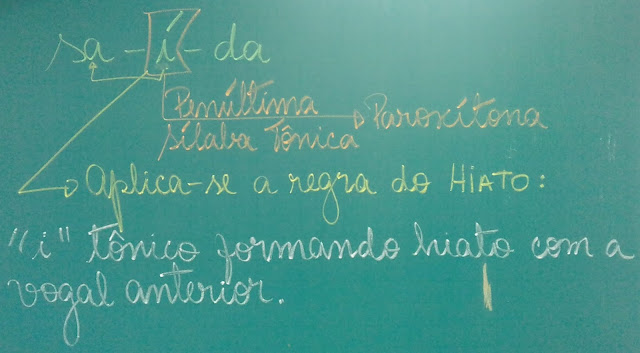 sa - í - da
Penúltima
Sílaba Tônica → Paroxítona
Aplica-se a regra do HIATO:
"i" tônico formando hiato com a
vogal anterior.